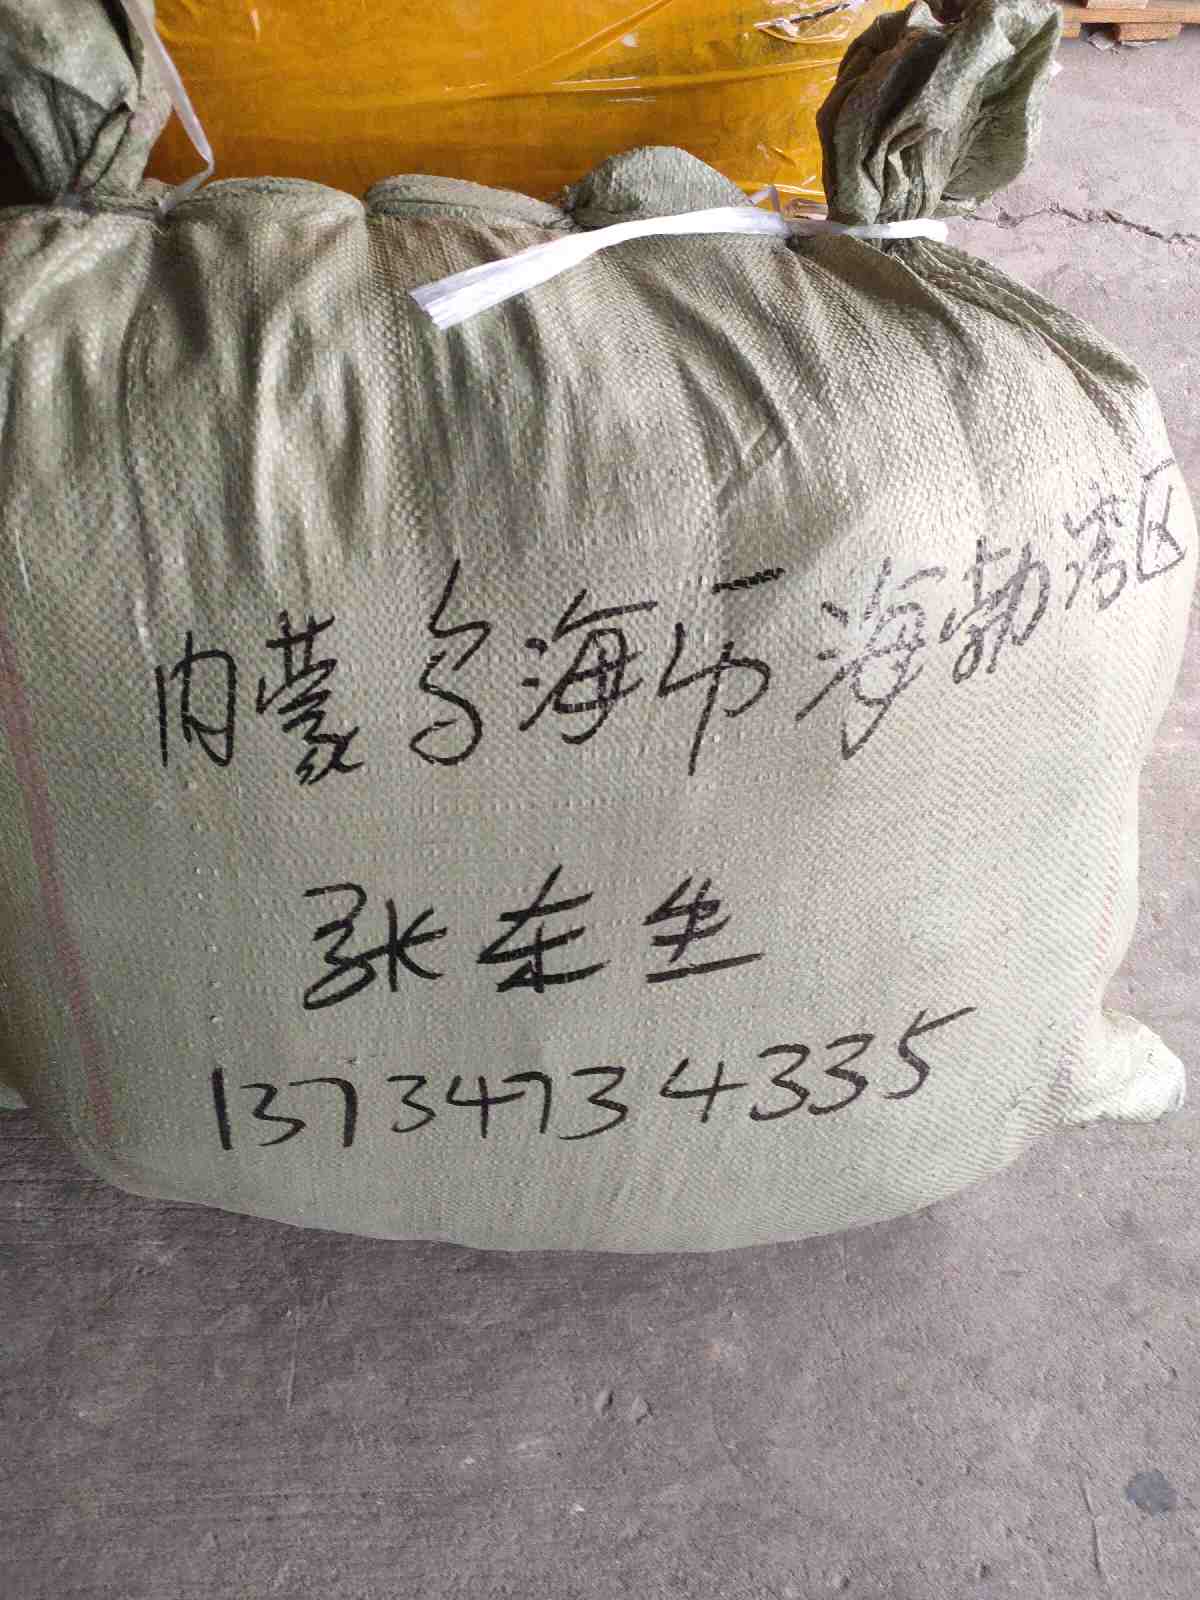 内蒙乌海市海勃湾区
张东生
13734734335